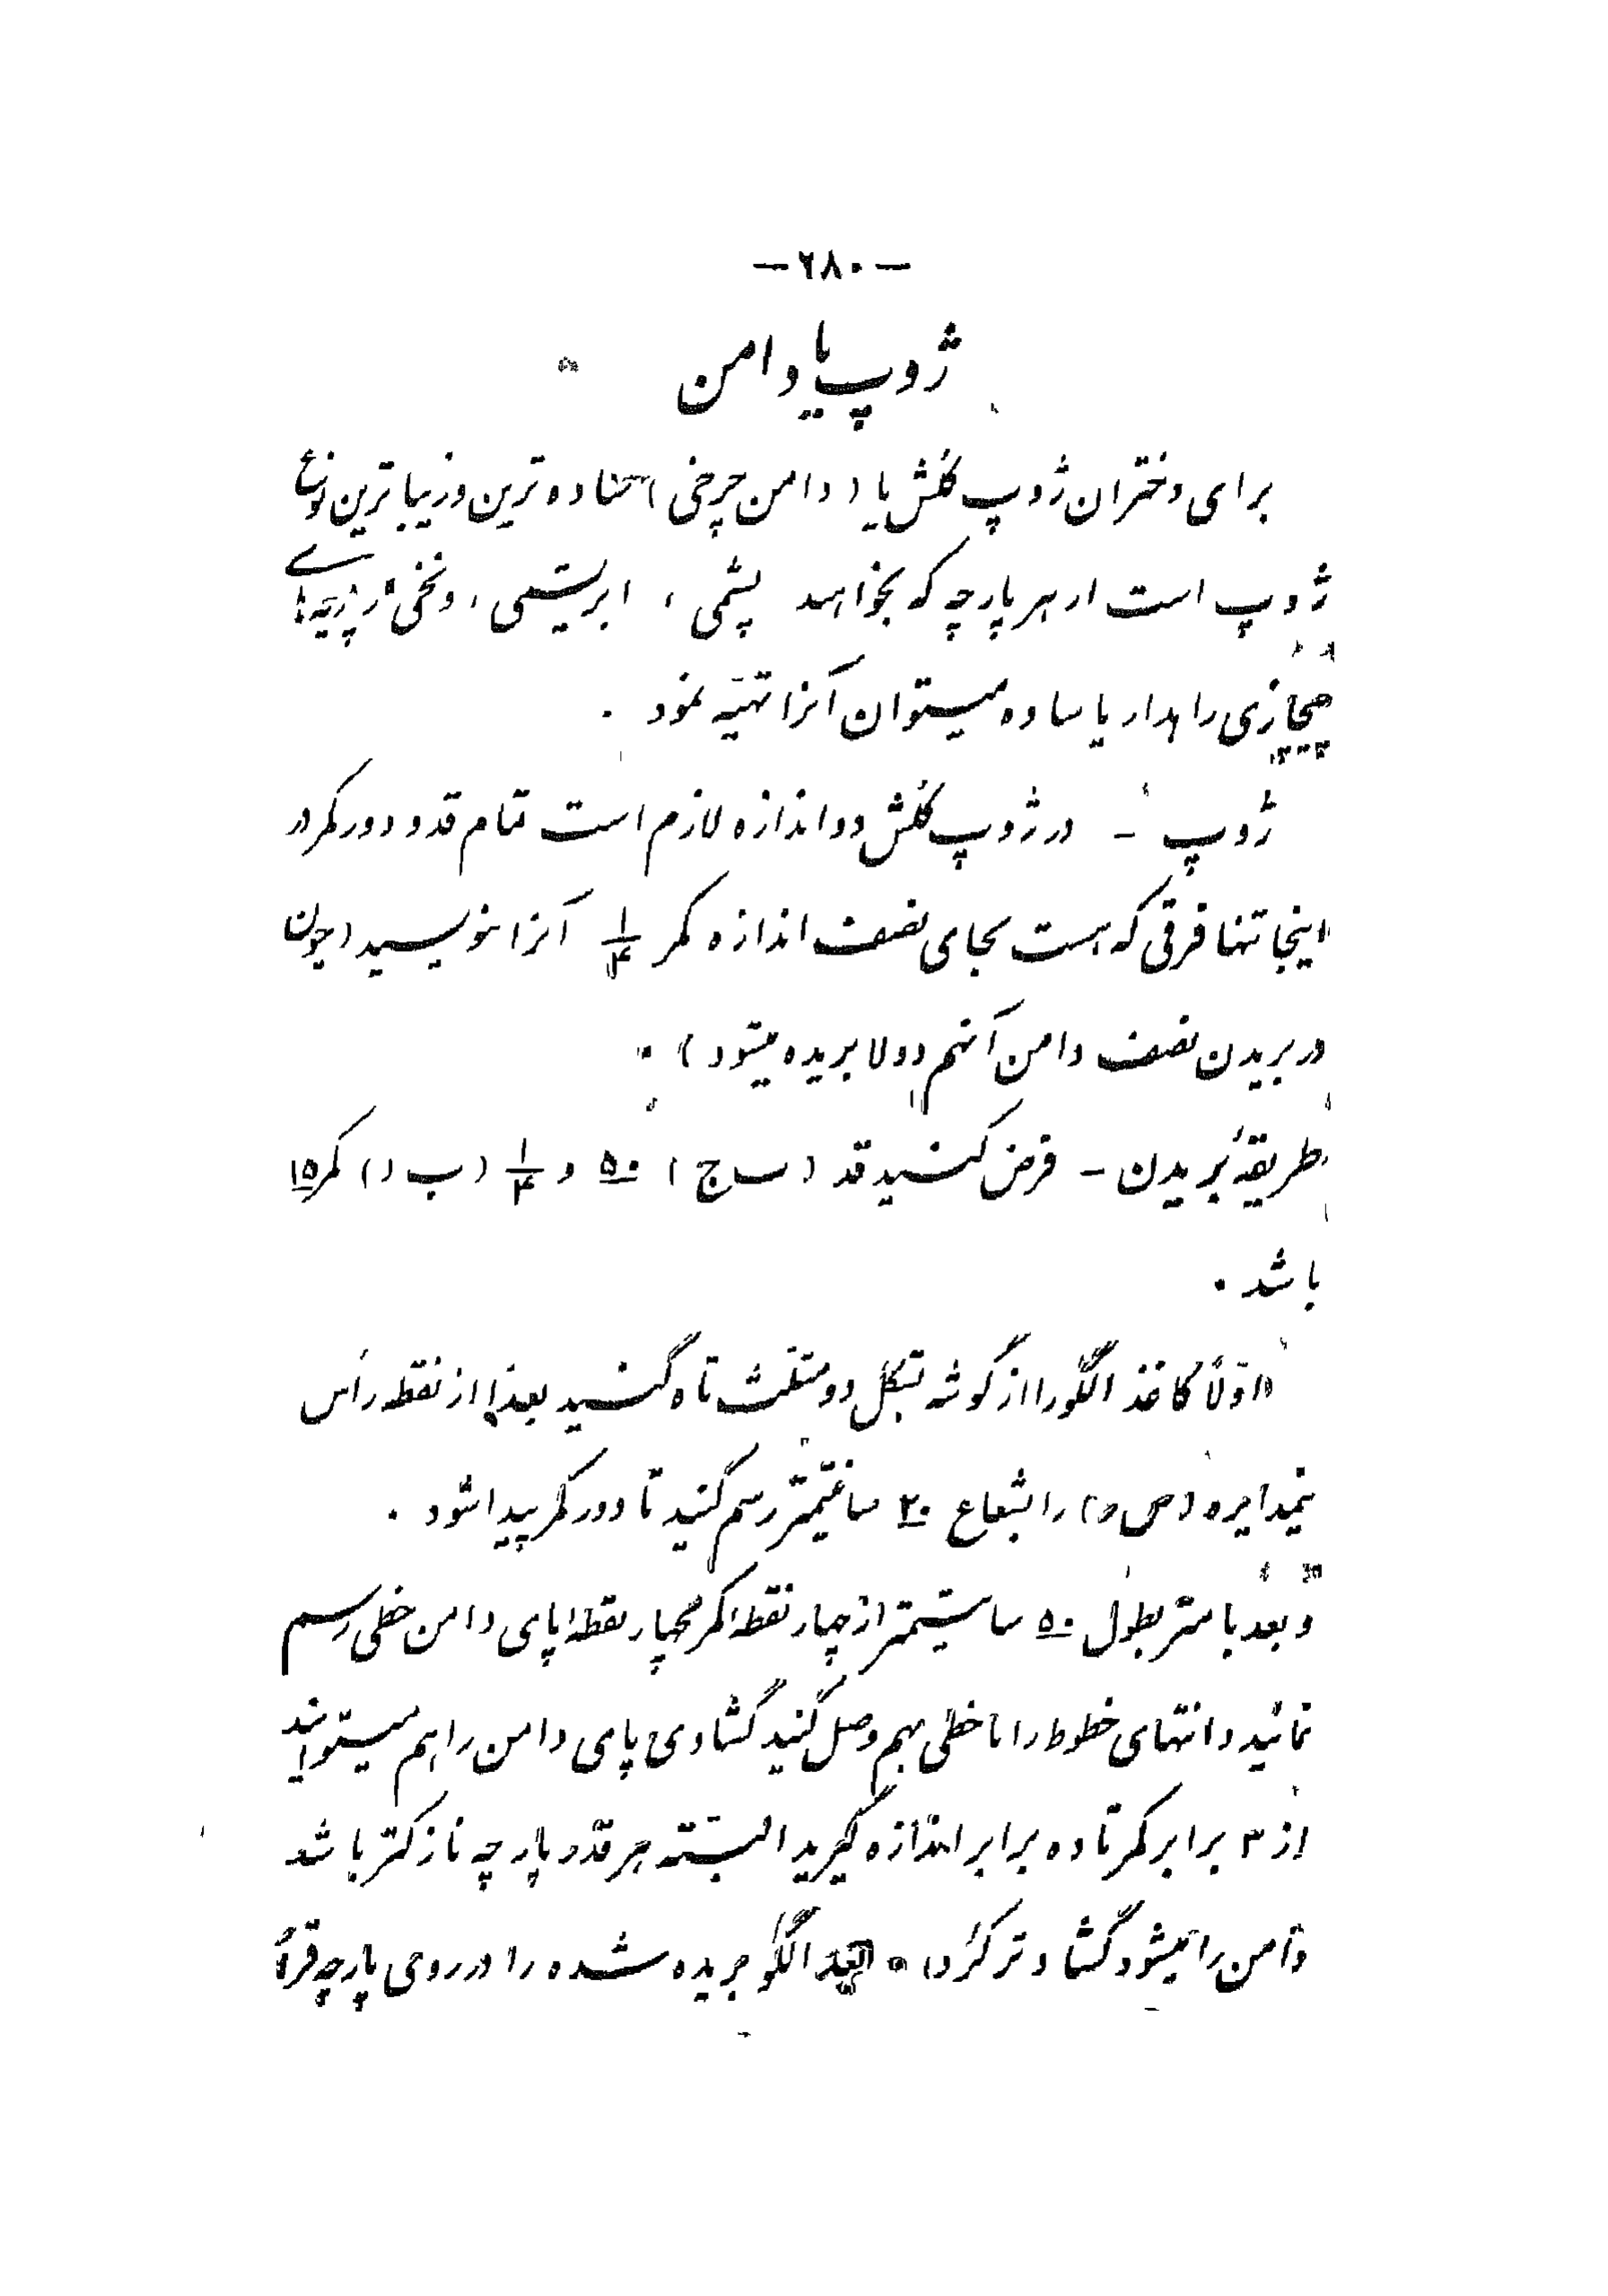 —۲۸۰—
ژوپ یا دامن
برای دختران ژوپ کلش یا (دامن چرخی) ساده ترین وزیبا ترین نوع
ژوپ است از هر پارچه که بخواهند پشمی، ابریشمی، ونخی پارچه‌های
پیچازی راهدار یا ساده میستوان آنرا تهیّه نمود .
ژوپ - در ژوپ کلش دو اندازه لازم است تمام قد و دور کمر در
اینجا تنها فرقی که هست بجای نصف اندازه کمر ۱/۴ آنرا نویسید (چون
در بریدن نصف دامن آنهم دولا بریده میشود) .
طریقهٔ بُریدن - فرض کنسید قد (س ج) ۵۰ و ۱/۴ (ب د) کمر ۱۵
باشد .
اوّلاً کاغذ الگو را از گوشه بشکل دو مثلّث تاه کنسید بعداً از نقطه رأس
نیمدایره (ص و) را بشعاع ۲۰ سانتیمتر رسم کنید تا دور کمر پیدا شود .
و بعد با متر بطول ۵۰ سانتیمتر از چهار نقطهٔ کمر بچهار نقطهٔ پای دامن خطی رسم
نمائید و انتهای خطوط را با خطی بهم وصل کنید گشادی پای دامن را هم میستوانید
از ۳ برابر کمر تا ده برابر اندازه گیرید البسته هر قدر پارچه نازکتر باشد
دامن را میشود گشاد تر کرد . بعد الگو بریده شده را در روی پارچه